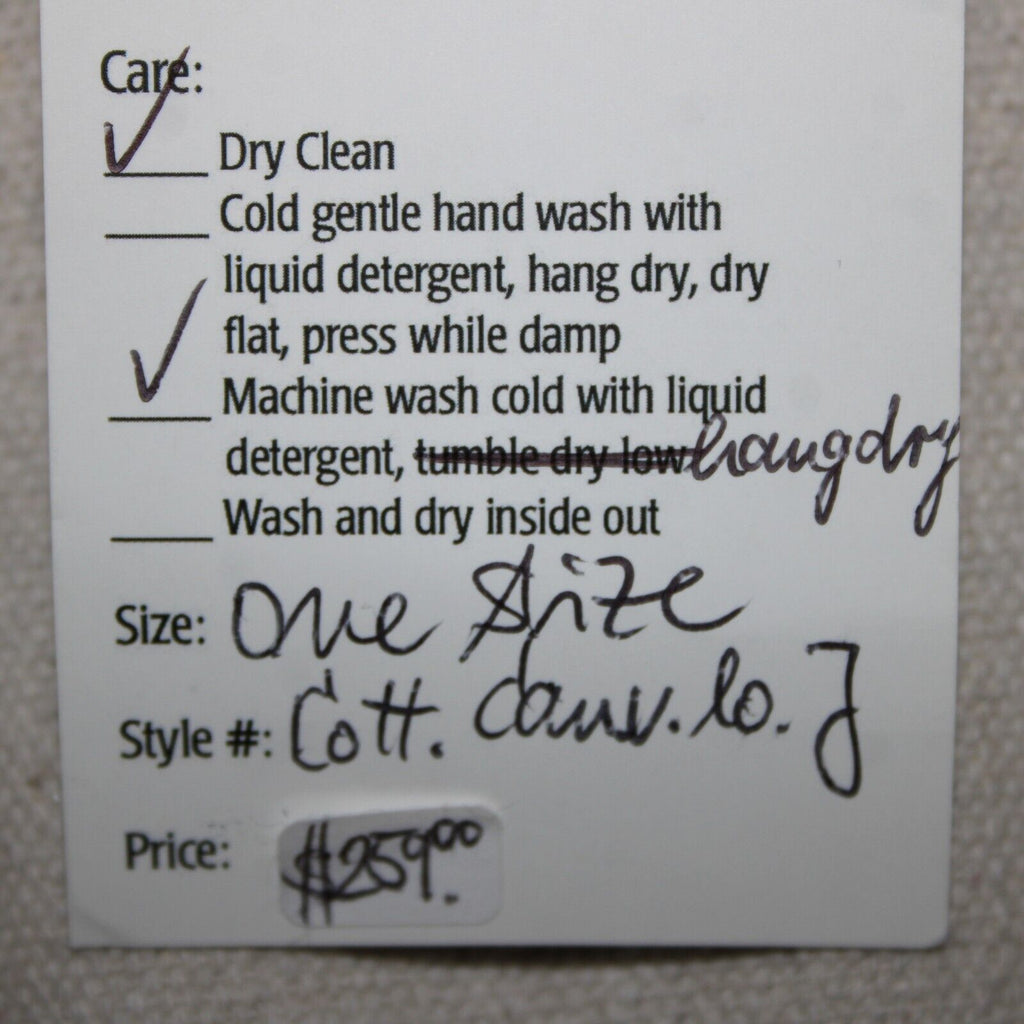 Care:
Dry Clean
Cold gentle hand wash with
liquid detergent, hang dry, dry
flat, press while damp
Machine wash cold with liquid
detergent, tumble dry low hang dry
Wash and dry inside out
Size: One Size
Style #: Cott. Canv. lo. J
Price: $259.00